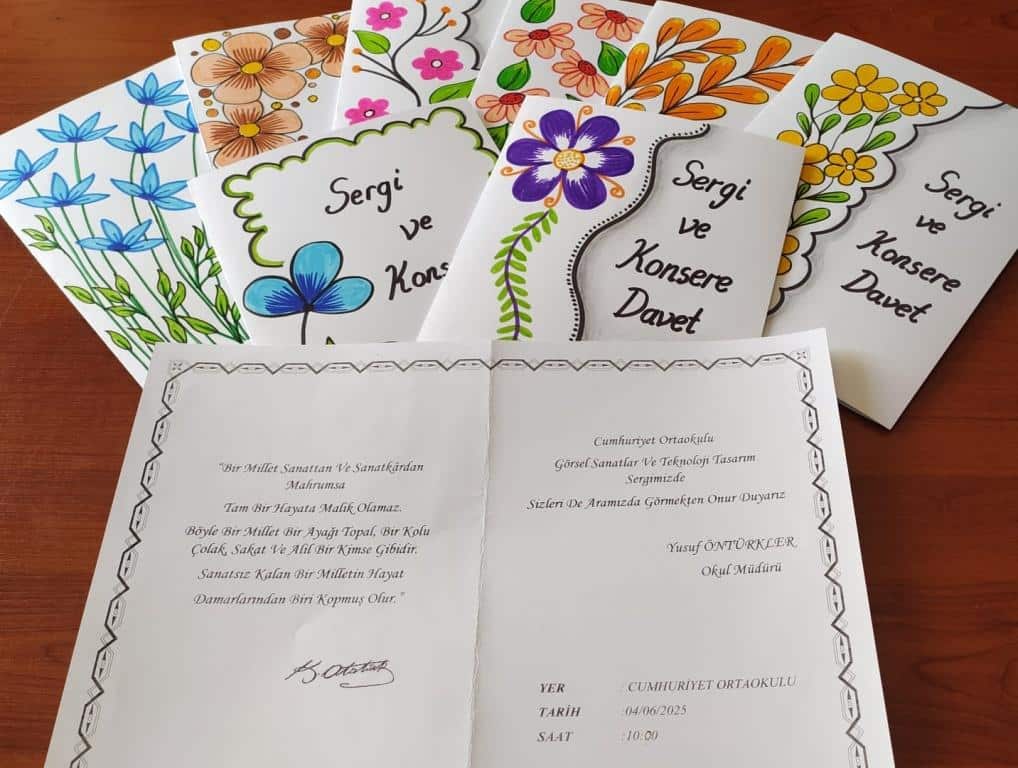 Sergi
ve
Sergi
ve
Konsere
Davet
Sergi
ve
Konsere
Davet
"Bir Millet Sanattan Ve Sanatkârdan
Mahrumsa
Tam Bir Hayata Malik Olamaz.
Böyle Bir Millet Bir Ayağı Topal, Bir Kolu
Çolak, Sakat Ve Alil Bir Kimse Gibidir.
Sanatsız Kalan Bir Milletin Hayat
Damarlarından Biri Kopmuş Olur."
K. Atatürk
Cumhuriyet Ortaokulu
Görsel Sanatlar Ve Teknoloji Tasarım
Sergimizde
Sizleri De Aramızda Görmekten Onur Duyarız
Yusuf ÖNTÜRKLER
Okul Müdürü
YER : CUMHURİYET ORTAOKULU
TARİH :04/06/2025
SAAT :10:00